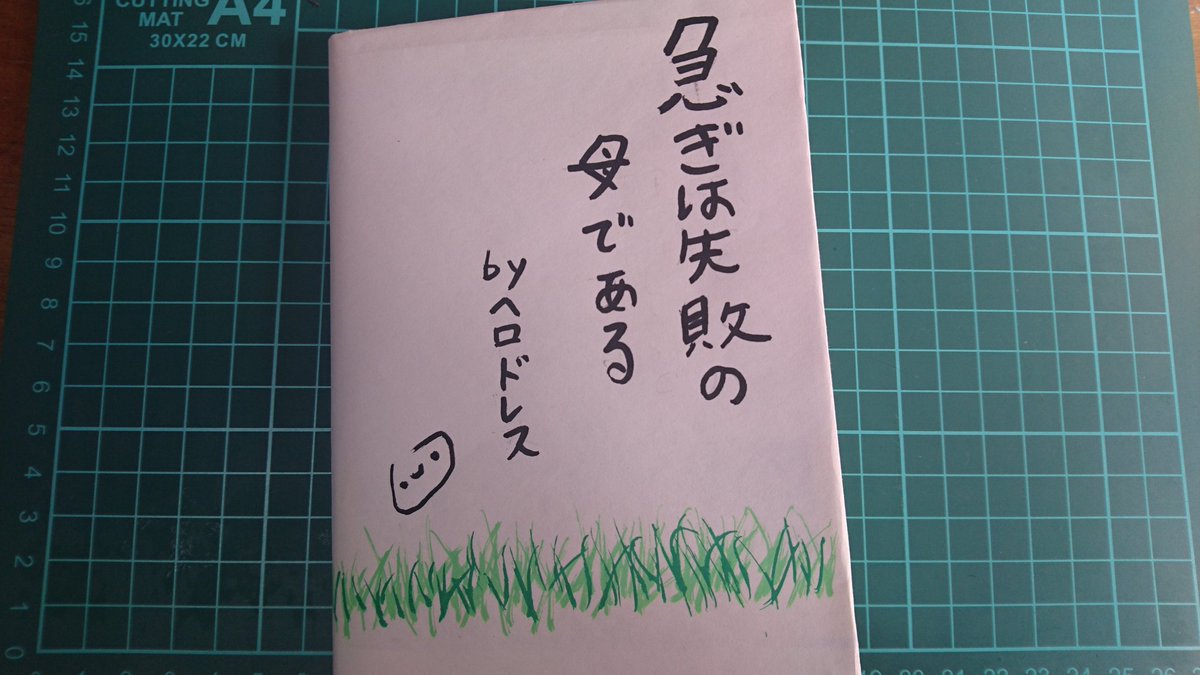 急ぎは失敗の
母である
byヘロドレス
CUTTING
MAT A4
30X22 CM
15
14
13
12
11
10
9
8
7
6
5
4
3
2
1
0